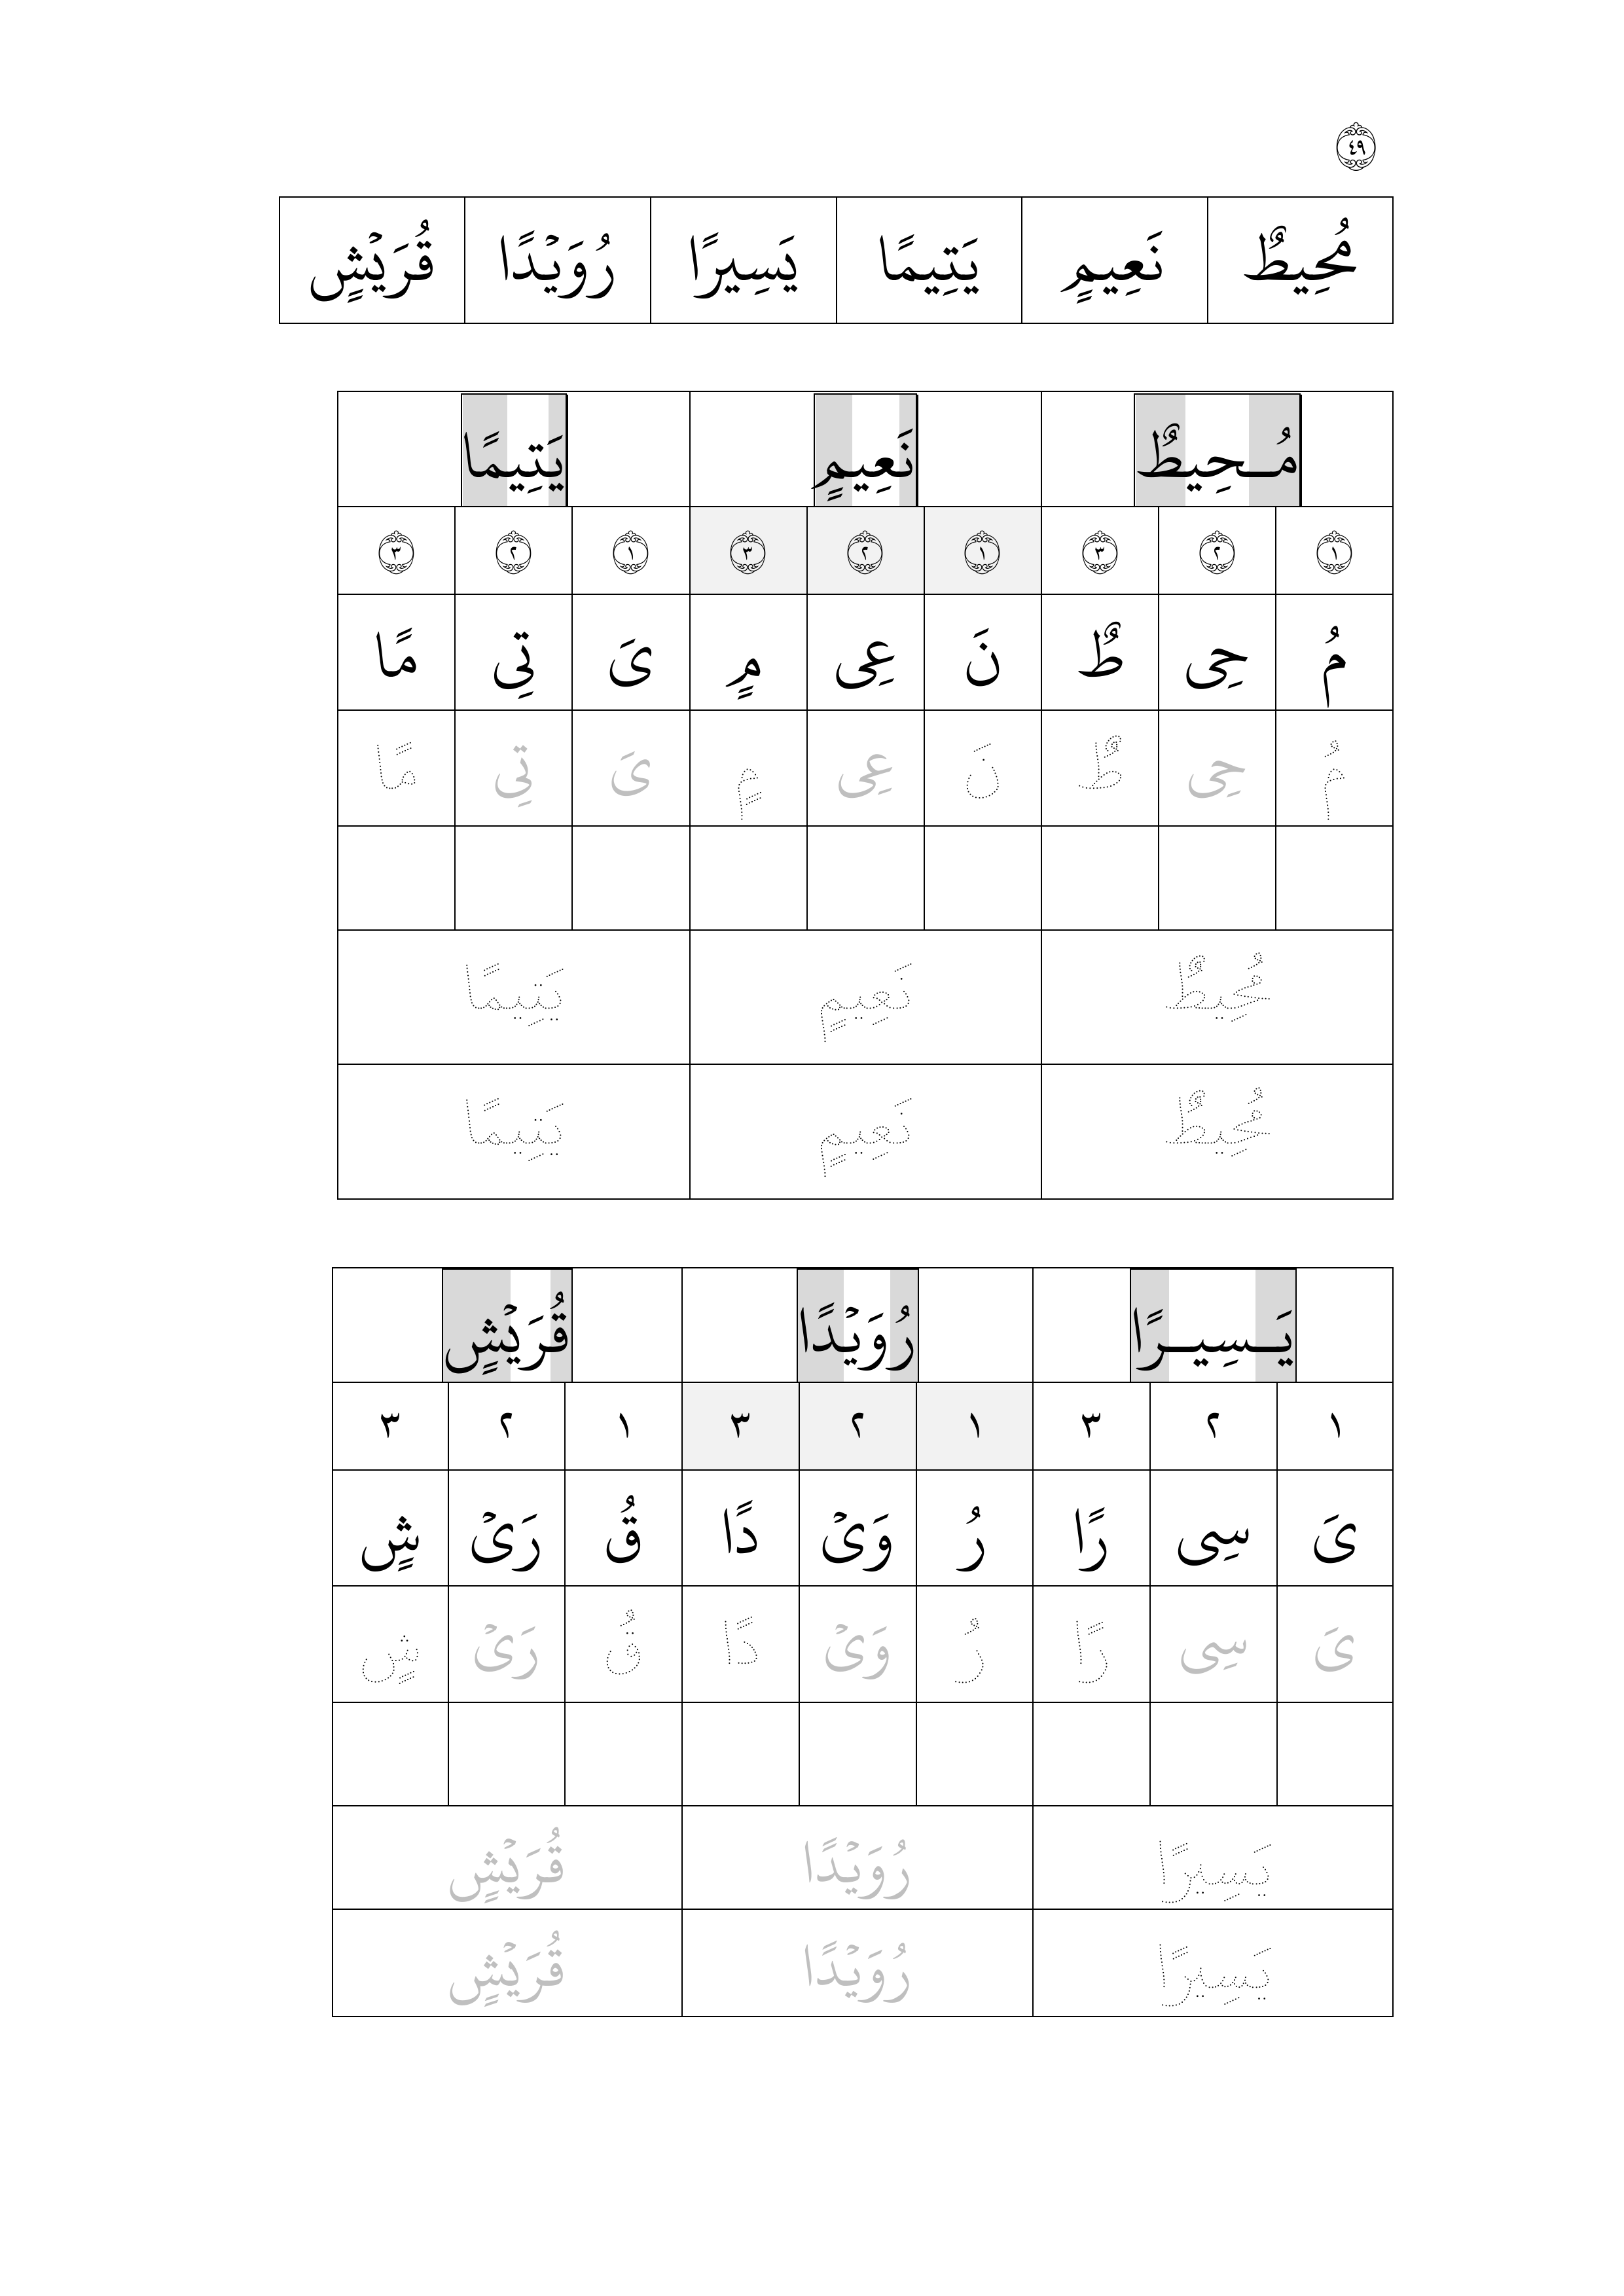 ٤٩
مُحِيطٌ نَعِيمٍ يَتِيمًا يَسِيرًا رُوَيْدًا قُرَيْشٍ
مُـحِيطٌ نَعِيمٍ يَتِيمًا
١ ٢ ٣ ١ ٢ ٣ ١ ٢ ٣
مُ حِى طٌ نَ عِى مٍ ىَ تِى مًا
مُ حِى طٌ نَ عِى مٍ ىَ تِى مًا
مُحِيطٌ نَعِيمٍ يَتِيمًا
مُحِيطٌ نَعِيمٍ يَتِيمًا
يَـسِيـرًا رُوَيْدًا قُرَيْشٍ
١ ٢ ٣ ١ ٢ ٣ ١ ٢ ٣
ىَ سِى رًا رُ وَىْ دًا قُ رَىْ شٍ
ىَ سِى رًا رُ وَىْ دًا قُ رَىْ شٍ
يَسِيرًا رُوَيْدًا قُرَيْشٍ
يَسِيرًا رُوَيْدًا قُرَيْشٍ